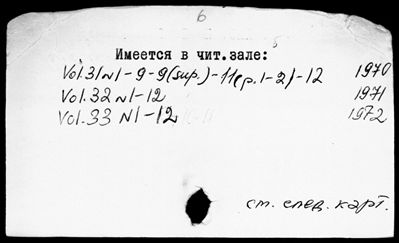 6
Имеется в чит. зале:
Vol. 31 N1-9-9(sup.)-11(p.1-2)-12 1970
Vol. 32 N1-12 1971
Vol. 33 N1-12 1972
см. след. карт.